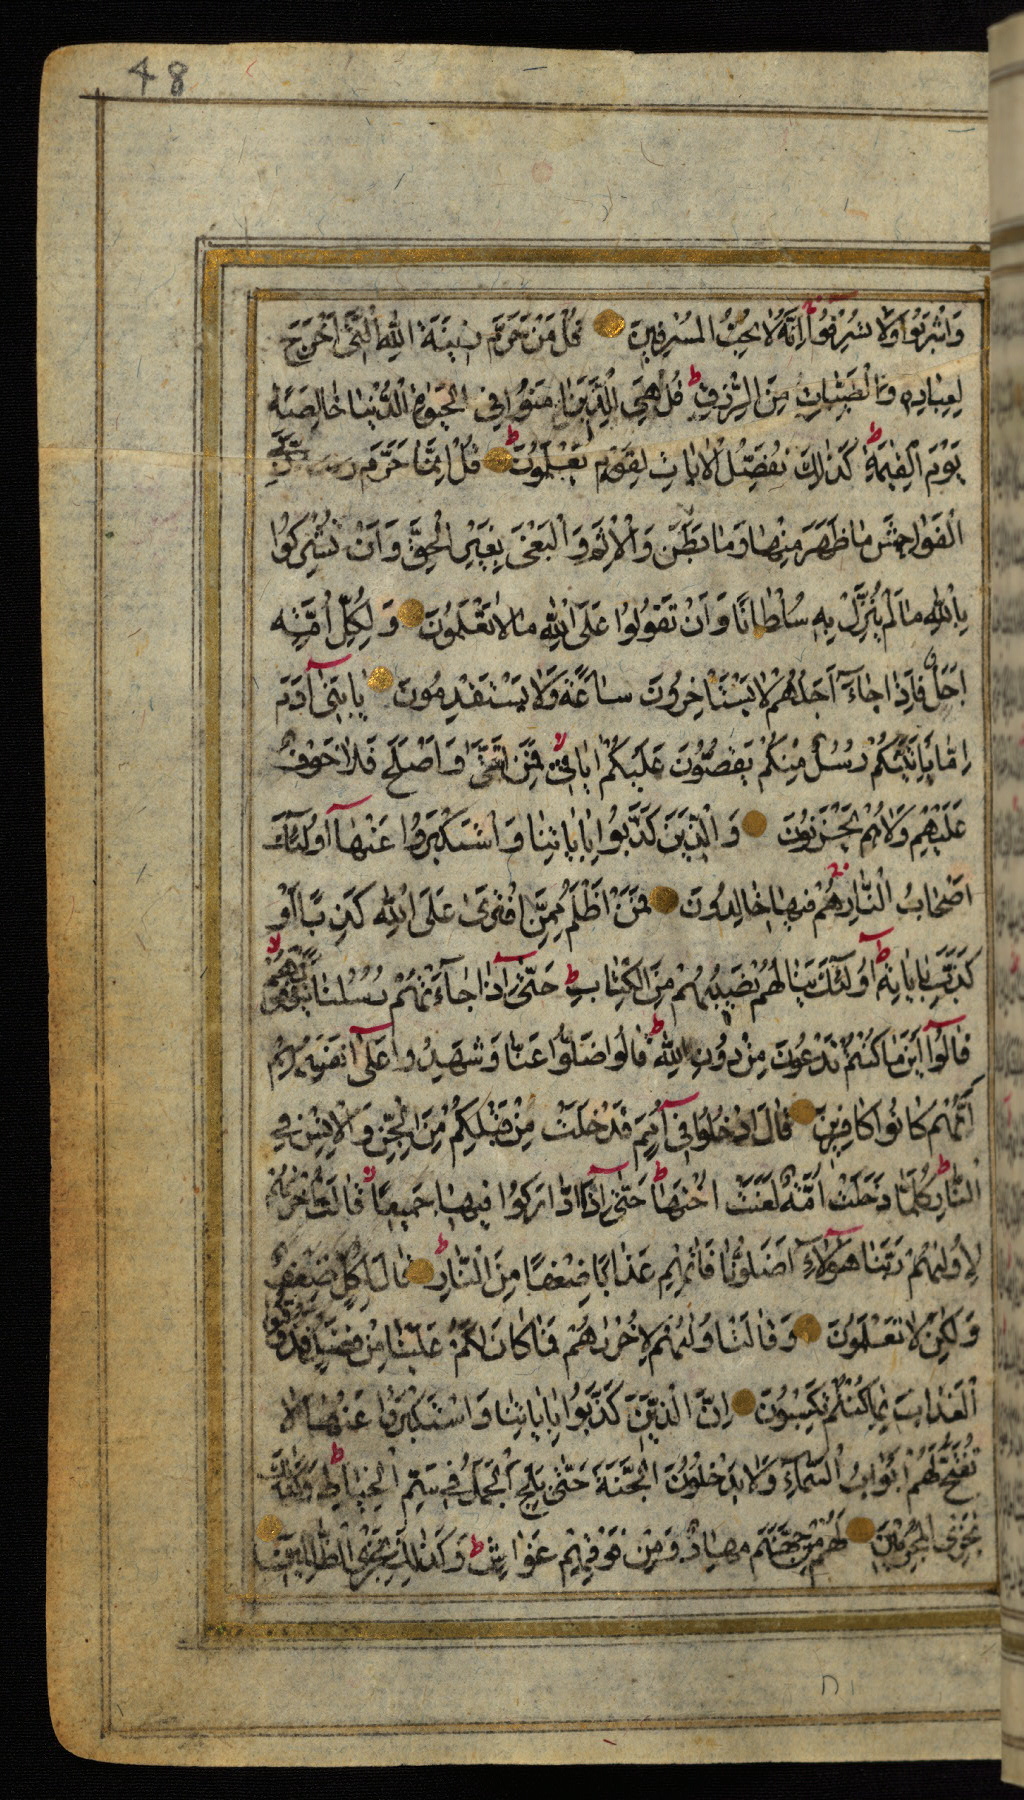 48
وَاشْرَبُوا وَلَا تُسْرِفُوا اِنَّهُ لَا يُحِبُّ الْمُسْرِفِينَ قُلْ مَنْ حَرَّمَ زِينَةَ اللّٰهِ الَّتِى اَخْرَجَ
لِعِبَادِهِ وَالطَّيِّبَاتِ مِنَ الرِّزْقِ ط قُلْ هِىَ لِلَّذِينَ اٰمَنُوا فِى الْحَيٰوةِ الدُّنْيَا خَالِصَةً
يَوْمَ الْقِيٰمَةِ ط كَذٰلِكَ نُفَصِّلُ الْاٰيَاتِ لِقَوْمٍ يَعْلَمُونَ ط قُلْ اِنَّمَا حَرَّمَ رَبِّىَ
الْفَوَاحِشَ مَا ظَهَرَ مِنْهَا وَمَا بَطَنَ وَالْاِثْمَ وَالْبَغْىَ بِغَيْرِ الْحَقِّ وَاَنْ تُشْرِكُوا
بِاللّٰهِ مَا لَمْ يُنَزِّلْ بِهِ سُلْطَانًا وَاَنْ تَقُولُوا عَلَى اللّٰهِ مَا لَا تَعْلَمُونَ وَلِكُلِّ اُمَّةٍ
اَجَلٌ فَاِذَا جَاءَ اَجَلُهُمْ لَا يَسْتَاْخِرُونَ سَاعَةً وَلَا يَسْتَقْدِمُونَ يَا بَنِى اٰدَمَ
اِمَّا يَاْتِيَنَّكُمْ رُسُلٌ مِنْكُمْ يَقُصُّونَ عَلَيْكُمْ اٰيَاتِى لا فَمَنِ اتَّقٰى وَاَصْلَحَ فَلَا خَوْفٌ
عَلَيْهِمْ وَلَا هُمْ يَحْزَنُونَ وَالَّذِينَ كَذَّبُوا بِاٰيَاتِنَا وَاسْتَكْبَرُوا عَنْهَا اُولٰئِكَ
اَصْحَابُ النَّارِ هُمْ فِيهَا خَالِدُونَ فَمَنْ اَظْلَمُ مِمَّنِ افْتَرٰى عَلَى اللّٰهِ كَذِبًا اَوْ
كَذَّبَ بِاٰيَاتِهِ ط اُولٰئِكَ يَنَالُهُمْ نَصِيبُهُمْ مِنَ الْكِتَابِ ط حَتّٰى اِذَا جَاءَتْهُمْ رُسُلُنَا يَتَوَفَّوْنَهُمْ لا
قَالُوا اَيْنَ مَا كُنْتُمْ تَدْعُونَ مِنْ دُونِ اللّٰهِ ط قَالُوا ضَلُّوا عَنَّا وَشَهِدُوا عَلٰى اَنْفُسِهِمْ
اَنَّهُمْ كَانُوا كَافِرِينَ قَالَ ادْخُلُوا فِى اُمَمٍ قَدْ خَلَتْ مِنْ قَبْلِكُمْ مِنَ الْجِنِّ وَالْاِنْسِ فِى
النَّارِ ط كُلَّمَا دَخَلَتْ اُمَّةٌ لَعَنَتْ اُخْتَهَا ط حَتّٰى اِذَا ادَّارَكُوا فِيهَا جَمِيعًا لا قَالَتْ اُخْرٰيهُمْ
لِاُولٰيهُمْ رَبَّنَا هٰؤُلَاءِ اَضَلُّونَا فَاٰتِهِمْ عَذَابًا ضِعْفًا مِنَ النَّارِ ط قَالَ لِكُلٍّ ضِعْفٌ
وَلٰكِنْ لَا تَعْلَمُونَ وَقَالَتْ اُولٰيهُمْ لِاُخْرٰيهُمْ فَمَا كَانَ لَكُمْ عَلَيْنَا مِنْ فَضْلٍ فَذُوقُوا
الْعَذَابَ بِمَا كُنْتُمْ تَكْسِبُونَ اِنَّ الَّذِينَ كَذَّبُوا بِاٰيَاتِنَا وَاسْتَكْبَرُوا عَنْهَا لَا
تُفَتَّحُ لَهُمْ اَبْوَابُ السَّمَاءِ وَلَا يَدْخُلُونَ الْجَنَّةَ حَتّٰى يَلِجَ الْجَمَلُ فِى سَمِّ الْخِيَاطِ ط وَكَذٰلِكَ
نَجْزِى الْمُجْرِمِينَ لَهُمْ مِنْ جَهَنَّمَ مِهَادٌ وَمِنْ فَوْقِهِمْ غَوَاشٍ ط وَكَذٰلِكَ نَجْزِى الظَّالِمِينَ